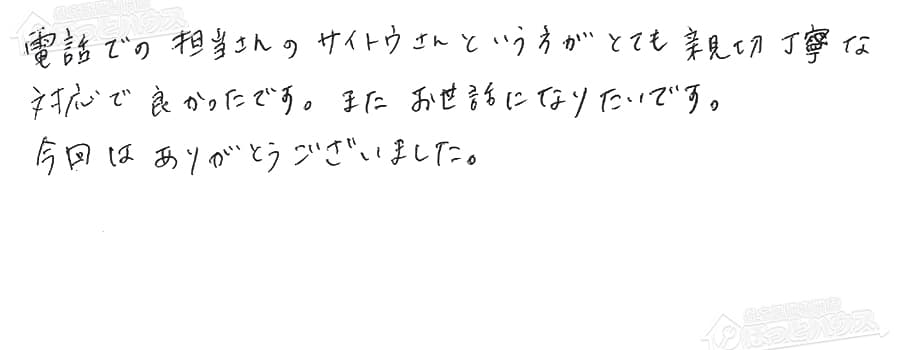 電話での担当さんのサイトウさんという方がとても親切丁寧な
対応で良かったです。またお世話になりたいです。
今回はありがとうございました。
ほっとハウス